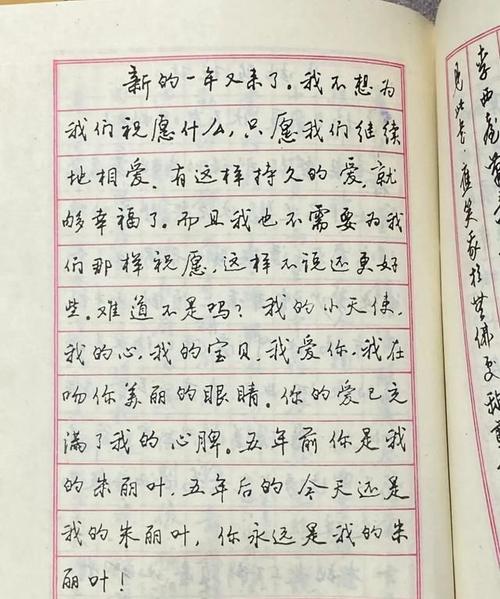 新的一年又来了。我不想为
我们祝愿什么,只愿我们继续
地相爱。有这样持久的爱,就
够幸福了。而且我也不需要为我
们那样祝愿,这样不说还更好
些。难道不是吗?我的小天使,
我的心,我的宝贝,我爱你,我在
吻你美丽的眼睛。你的爱已充
满了我的心脾。五年前你是我
的朱丽叶,五年后的今天还是
我的朱丽叶,你永远是我的朱
丽叶!
李西
见此长·應笑家